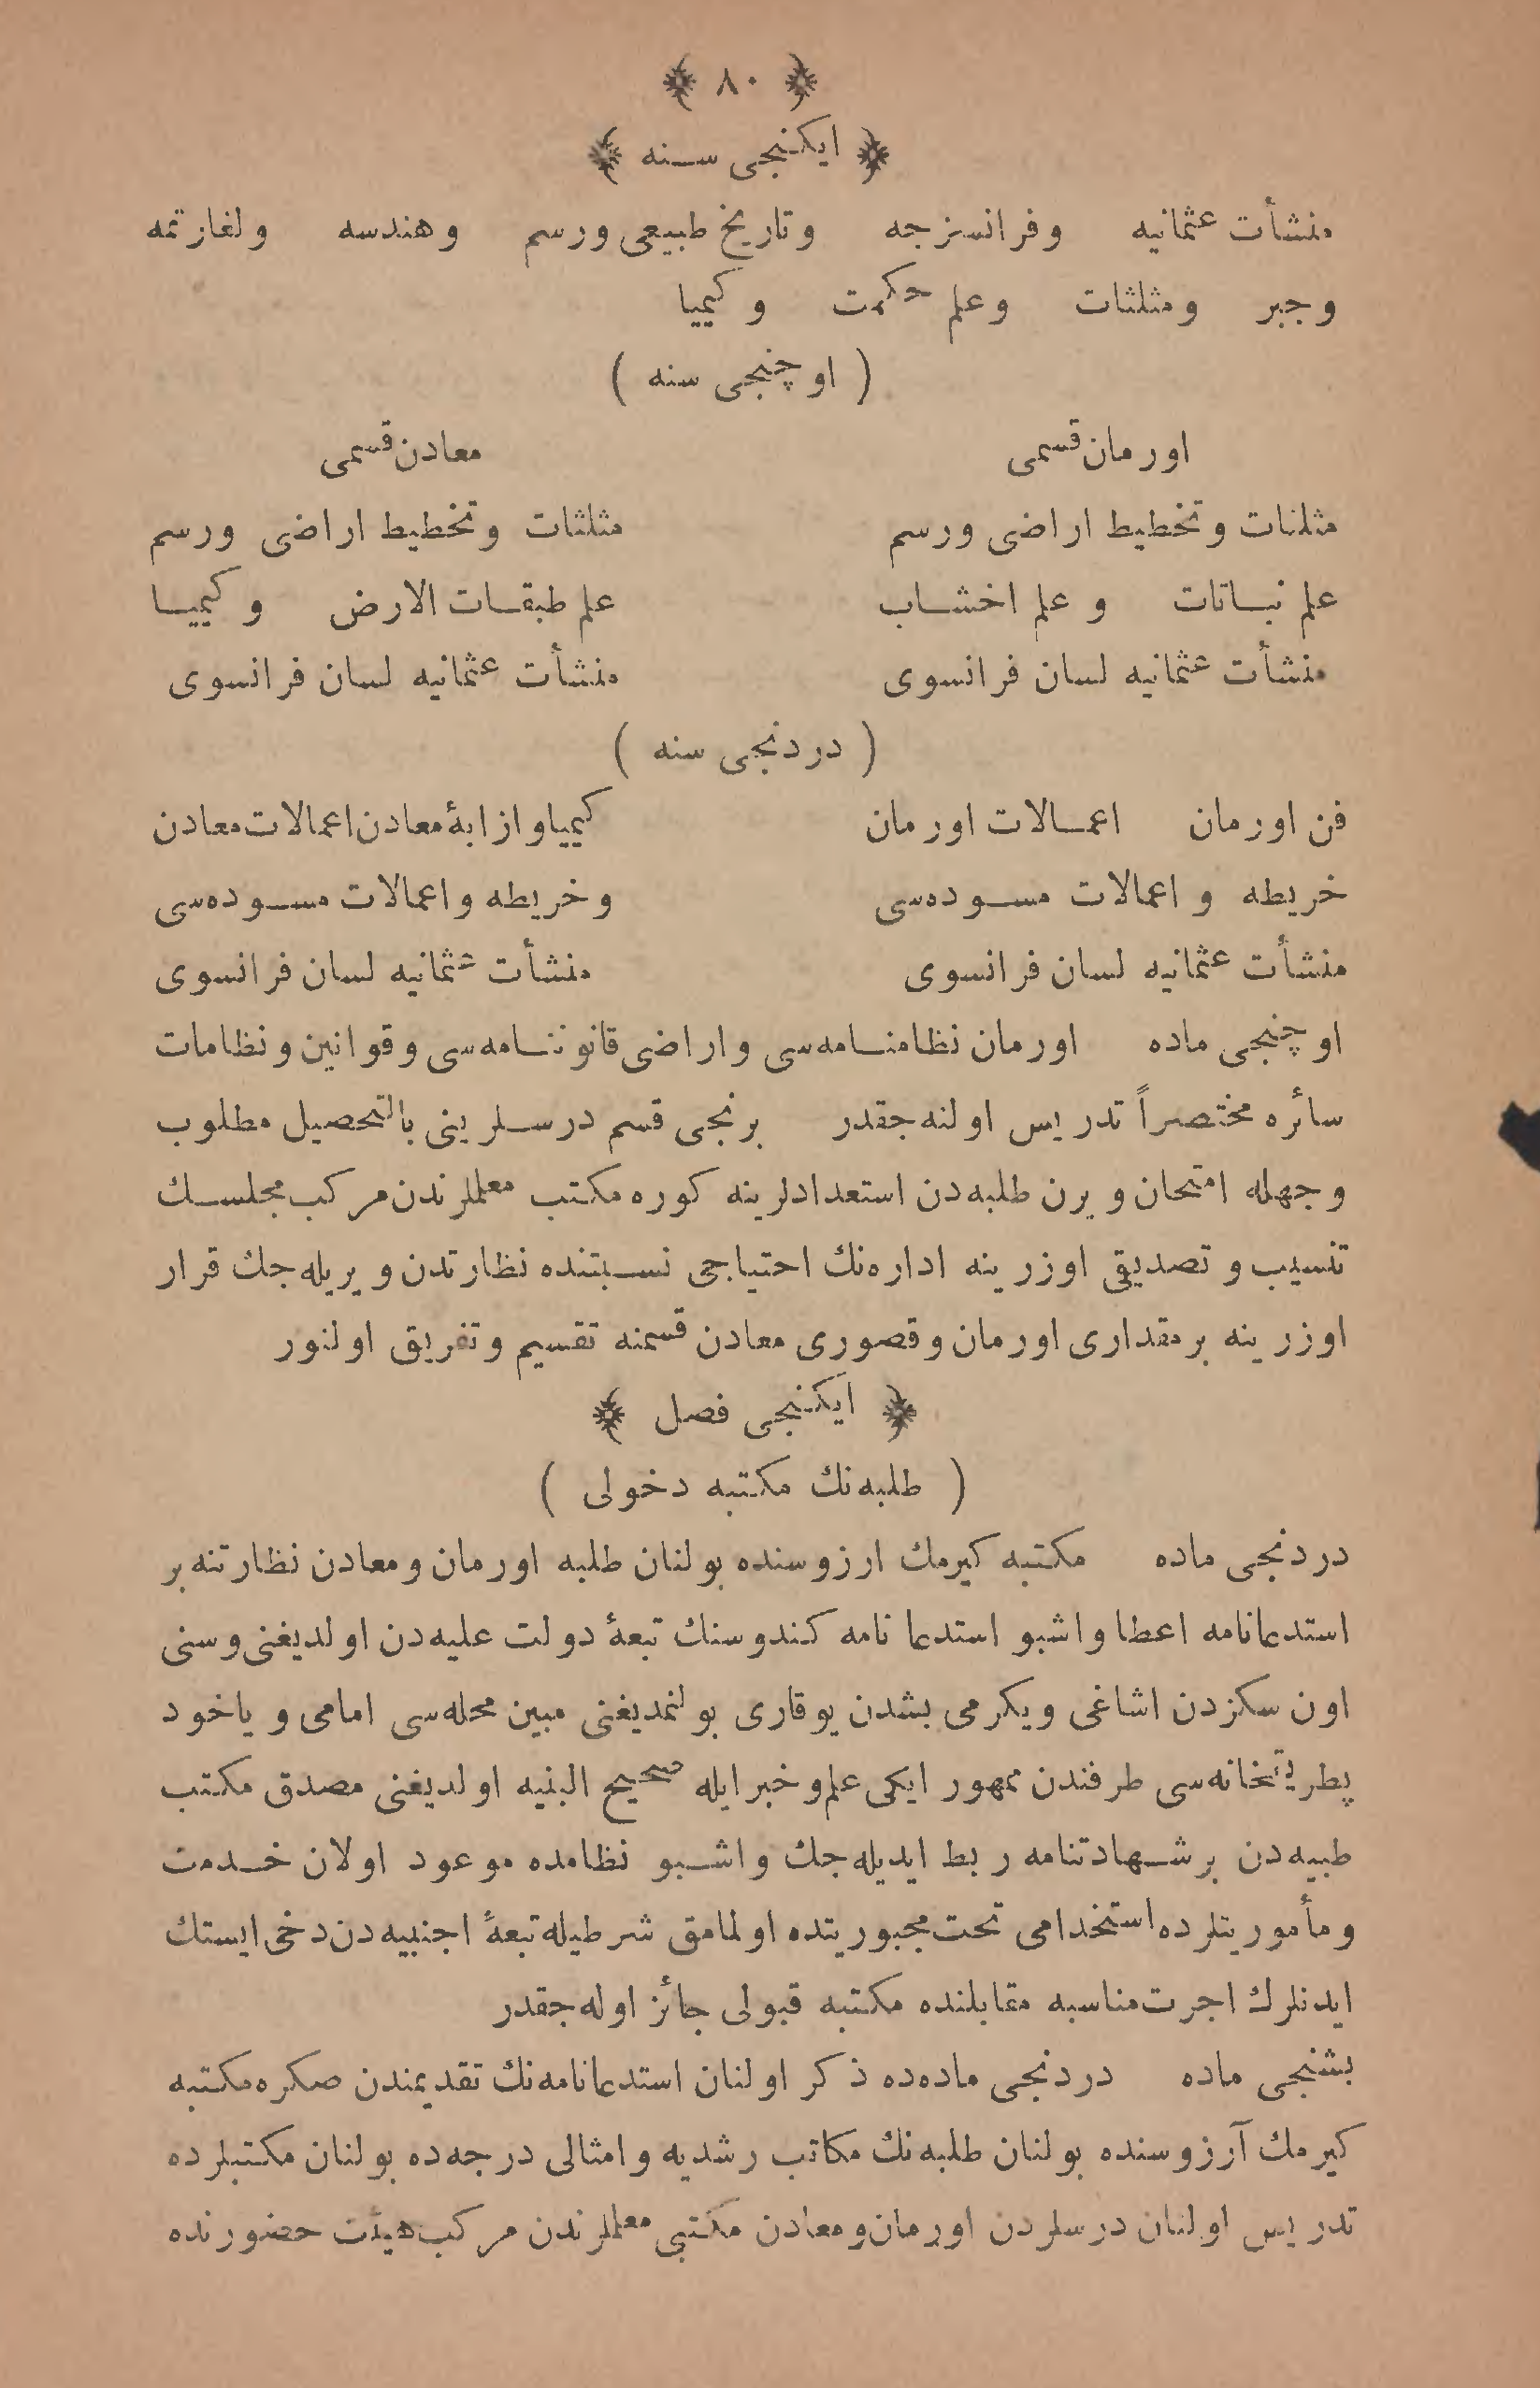 ﴿ ٨٠ ﴾
﴿ ایکنجی سنه ﴾
منشأت عثمانیه وفرانسزجه وتاریخ طبیعی ورسم وهندسه ولغارتمه
وجبر ومثلثات وعلم حکمت وکیمیا
( اوچنجی سنه )
اورمان قسمی
مثلثات وتخطیط اراضی ورسم
علم نباتات وعلم اخشاب
منشأت عثمانیه لسان فرانسوی
معادن قسمی
مثلثات وتخطیط اراضی ورسم
علم طبقات الارض وکیمیا
منشأت عثمانیه لسان فرانسوی
( دردنجی سنه )
فن اورمان اعمالات اورمان
خریطه و اعمالات مسوده‌سی
منشأت عثمانیه لسان فرانسوی
کیمیا و ازابهٔ معادن اعمالات معادن
وخریطه و اعمالات مسوده‌سی
منشأت عثمانیه لسان فرانسوی
اوچنجی ماده اورمان نظامنامه‌سی و اراضی قانوننامه‌سی و قوانین و نظامات
سائره مختصراً تدریس اولنه‌جقدر برنجی قسم درسلرینی بالتحصیل مطلوب
وجهله امتحان ویرن طلبه‌دن استعدادلرینه کوره مکتب معلملرندن مرکب مجلسك
تنسیب و تصدیقی اوزرینه اداره‌نك احتیاجی نسبتنده نظارتدن ویریله‌جك قرار
اوزرینه بر مقداری اورمان وقصوری معادن قسمنه تقسیم وتفریق اولنور
﴿ ایکنجی فصل ﴾
( طلبه‌نك مکتبه دخولی )
دردنجی ماده مکتبه کیرمك ارزوسنده بولنان طلبه اورمان ومعادن نظارتنه بر
استدعانامه اعطا واشبو استدعا نامه کندوسنك تبعهٔ دولت علیه‌دن اولدیغنی وسنی
اون سکزدن اشاغی ویکرمی بشدن یوقاری بولنمدیغنی مبین محله‌سی امامی و یاخود
پطریقخانه‌سی طرفندن ممهور ایکی علم وخبر ایله صحیح البنیه اولدیغنی مصدق مکتب
طبیه‌دن بر شهادتنامه ربط ایدیله‌جك واشبو نظامده موعود اولان خدمت
ومأموریتلرده استخدامی تحت مجبوریتده اولمامق شرطیله تبعهٔ اجنبیه‌دن دخی ایستك
ایدنلرك اجرت مناسبه مقابلنده مکتبه قبولی جائز اوله‌جقدر
بشنجی ماده دردنجی ماده‌ده ذکر اولنان استدعانامه‌نك تقدیمندن صکره مکتبه
کیرمك آرزوسنده بولنان طلبه‌نك مکاتب رشدیه و امثالی درجه‌ده بولنان مکتبلرده
تدریس اولنان درسلردن اورمان ومعادن مکتبی معلملرندن مرکب هیئت حضورنده